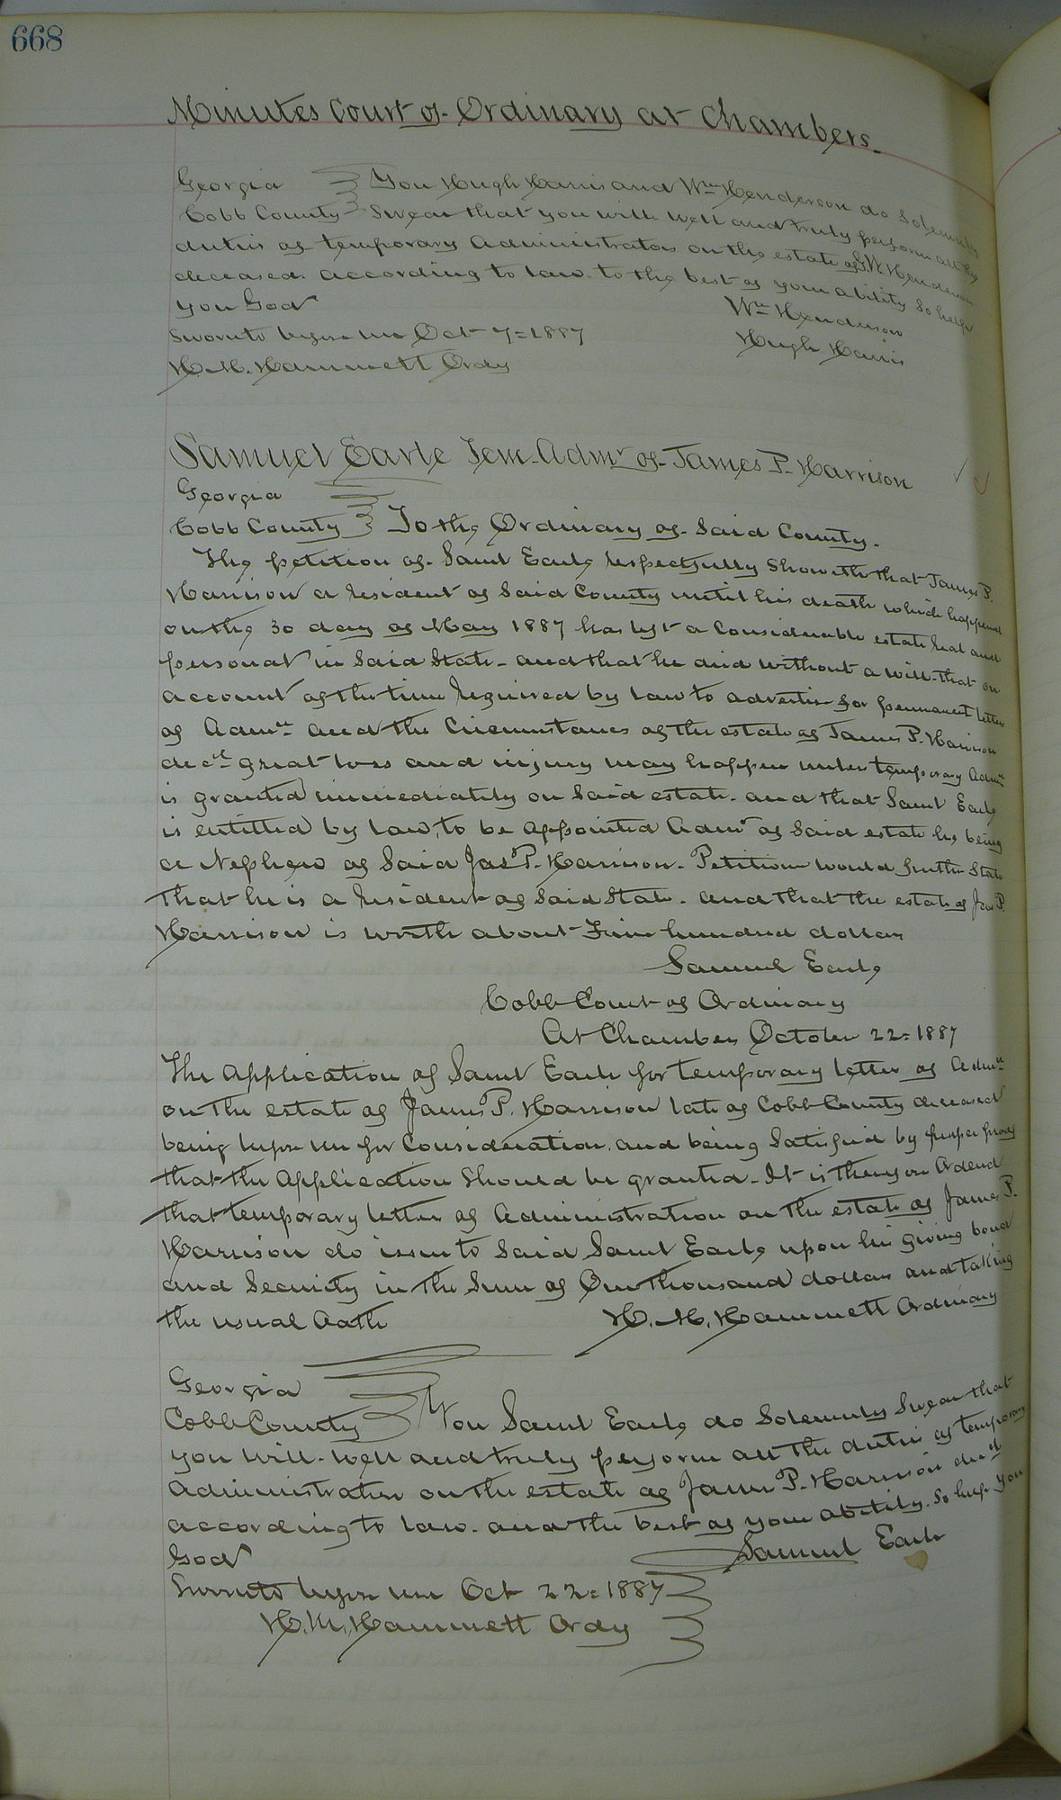 668
Minutes Court of Ordinary at Chambers.
Georgia You Hugh Harris and Wm Henderson do Solemnly
Cobb County Swear that you will well and truly perform all the
duties of temporary Administrators on the estate of Henderson
deceased. according to law. to the best of your ability So help
you God
Wm Henderson
Sworn to before me Oct 7=1887
Hugh Harris
H. M. Hammett Ordy
Samuel Earle Tem. Admr of James P. Harrison
Georgia
Cobb County To the Ordinary of Said County.
The petition of Saml Earle respectfully Showeth that James P.
Harrison a resident of Said County until his death which happened
on the 30 day of May 1887 has left a Considerable estate real and
personal in Said State - and that he died without a will - that on
account of the time required by law to advertise for permanent letters
of Admn and the Circumstances of the estate of James P. Harrison
decd great loss and injury may happen unless temporary Admn
is granted immediately on Said estate - and that Saml Earle
is entitled by law, to be appointed Admr of Said estate he being
a Nephew of Said Jas P. Harrison - Petitioner would further State
that he is a resident of Said State - and that the estate of Jas P.
Harrison is worth about hundred dollars
Samuel Earle
Cobb Court of Ordinary
At Chambers October 22=1887
The Application of Saml Earle for temporary letters of Admn
on the estate of James P. Harrison late of Cobb County deceased
being before me for Consideration, and being Satisfied by proper proof
that the Application Should be granted - It is therefore Ordered
that temporary letters of Administration on the estate of James P.
Harrison do issue to Said Saml Earle upon his giving bond
and Security in the Sum of One thousand dollars and taking
the usual Oath
H. M. Hammett Ordinary
Georgia
Cobb County You Saml Earle do Solemnly Swear that
you will - well and truly perform all the duties of temporary
Administrator on the estate of James P. Harrison decd
according to law - and the best of your ability. So help you
God
Samuel Earle
Sworn to before me Oct 22=1887
H. M. Hammett Ordy